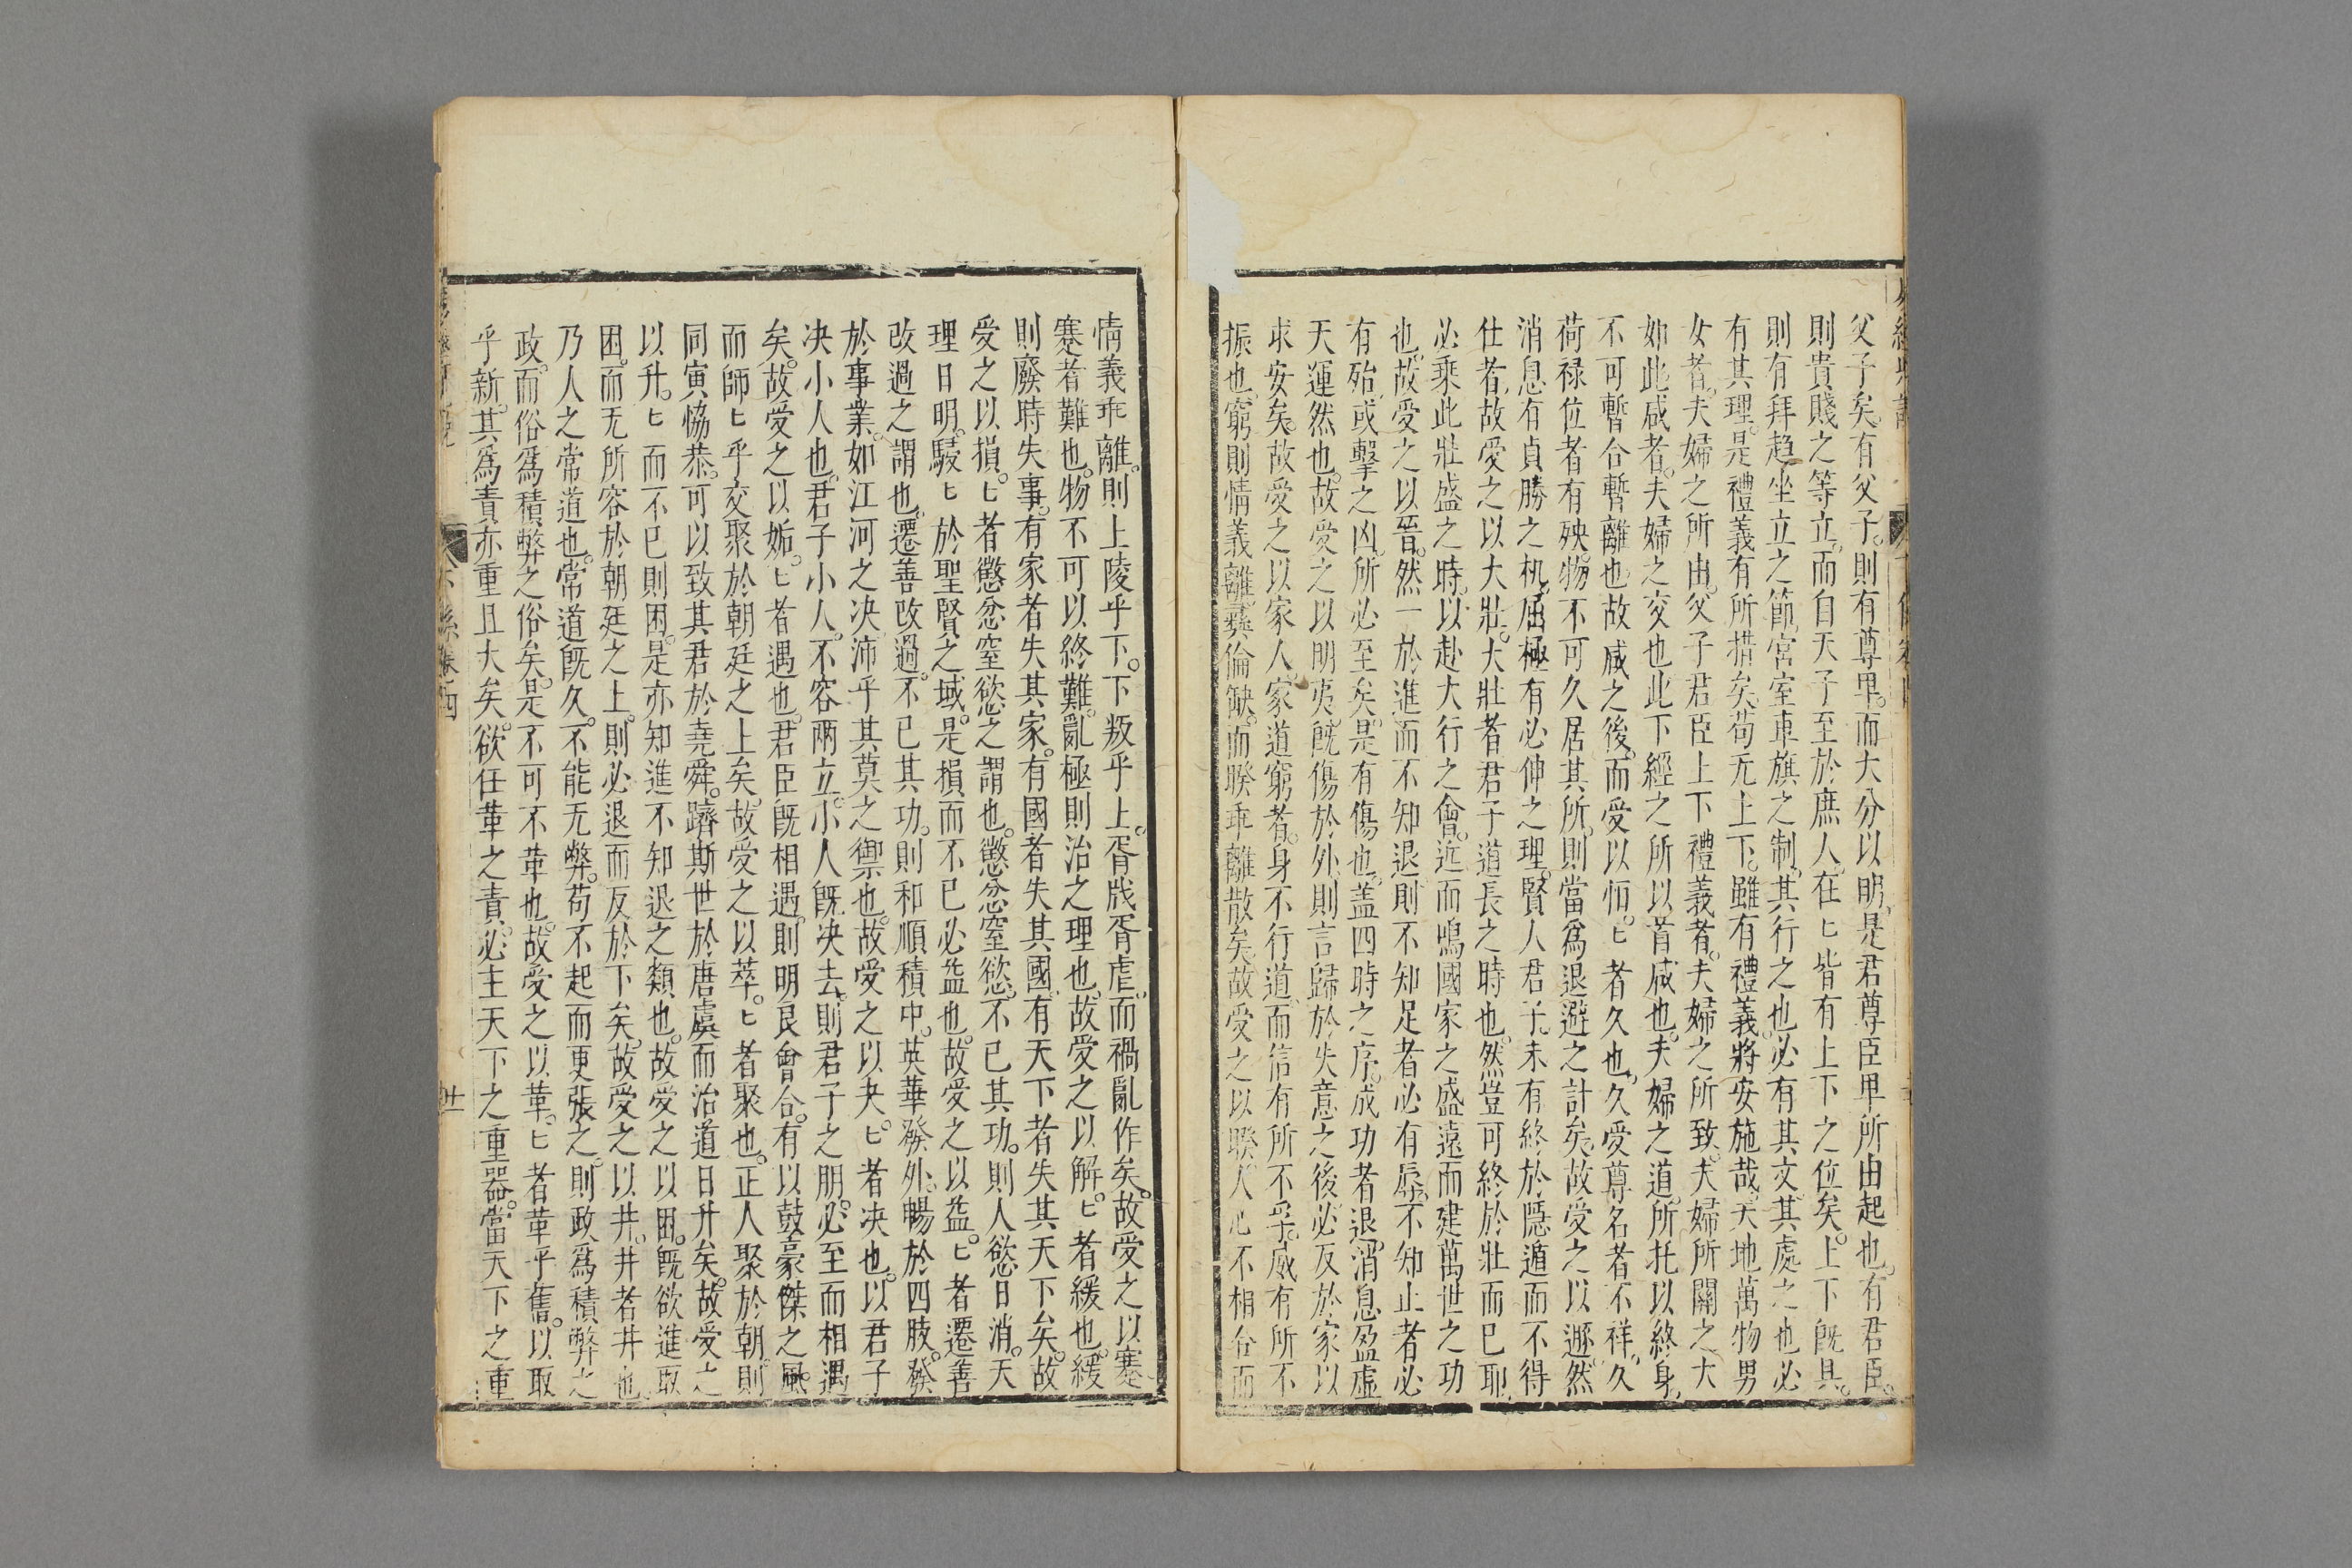 父子矣。有父子。則有尊卑。而大分以明。是君尊臣卑所由起也。有君臣。
則貴賤之等立。而自天子至於庶人。在〻皆有上下之位矣。上下旣具。
則有拜趋坐立之節。宮室車旗之制。其行之也。必有其文。其處之也必
有其理。是禮義有所措矣。苟无上下。雖有禮義。將安施哉。天地萬物男
女者。夫婦之所由。父子君臣上下禮義者。夫婦之所致。夫婦所關之大
如此。咸者。夫婦之交也。此下經之所以首咸也。夫婦之道。所托以終身。
不可暫合暫離也。故咸之後。而受以恒。〻者久也。久受尊名者不祥。久
荷禄位者有殃。物不可久居其所。則當爲退避之計矣。故受之以遯。然
消息有貞勝之机。屈極有必伸之理。賢人君子。未有終於隱遁而不得
仕者。故受之以大壯。大壯者君子道長之時也。然豈可終於壯而已耶。
必乘此壯盛之時。以赴大行之會。近而鳴國家之盛。遠而建萬世之功
也。故受之以晉。然一於進而不知退。則不知足者必有辱。不知止者必
有殆。或擊之凶。所必至矣。是有傷也。盖四時之序。成功者退。消息盈虛
天運然也。故受之以明夷。旣傷於外。則言歸於失意之後。必反於家以
求安矣。故受之以家人。家道窮者。身不行道。而信有所不孚。威有所不
振也。窮則情義離。彞倫缺。而睽乖離散矣。故受之以睽。人心不相合而
情義乖離。則上陵乎下。下叛乎上。胥戕胥虐。而禍亂作矣。故受之以蹇
蹇者難也。物不可以終難。亂極則治之理也。故受之以解。〻者緩也。緩
則廢時失事。有家者失其家。有國者失其國。有天下者失其天下矣。故
受之以損。〻者懲忿窒慾之謂也。懲忿窒慾。不已其功。則人慾日消。天
理日明。駸〻於聖賢之域。是損而不已必益也。故受之以益。〻者遷善
改過之謂也。遷善改過。不已其功。則和順積中。英華發外。暢於四肢。發
於事業。如江河之决。沛乎其莫之禦也。故受之以夬。〻者决也。以君子
决小人也。君子小人。不容兩立。小人旣决去。則君子之朋。必至而相遇
矣。故受之以姤。〻者遇也。君臣旣相遇。則明良會合。有以鼓豪傑之風。
而師〻乎交聚於朝廷之上矣。故受之以萃。〻者聚也。正人聚於朝。則
同寅恊恭。可以致其君於堯舜。躋斯世於唐虞。而治道日升矣。故受之
以升。〻而不已則困。是亦知進不知退之類也。故受之以困。旣欲進取
困。而无所容於朝廷之上。則必退而反於下矣。故受之以井。井者井也
乃人之常道也。常道旣久。不能无弊。苟不起而更張之。則政爲積弊之
政。而俗爲積弊之俗矣。是不可不革也。故受之以革。〻者革乎舊。以取
乎新。其爲責亦重且大矣。欲任革之責。必主天下之重器。當天下之重